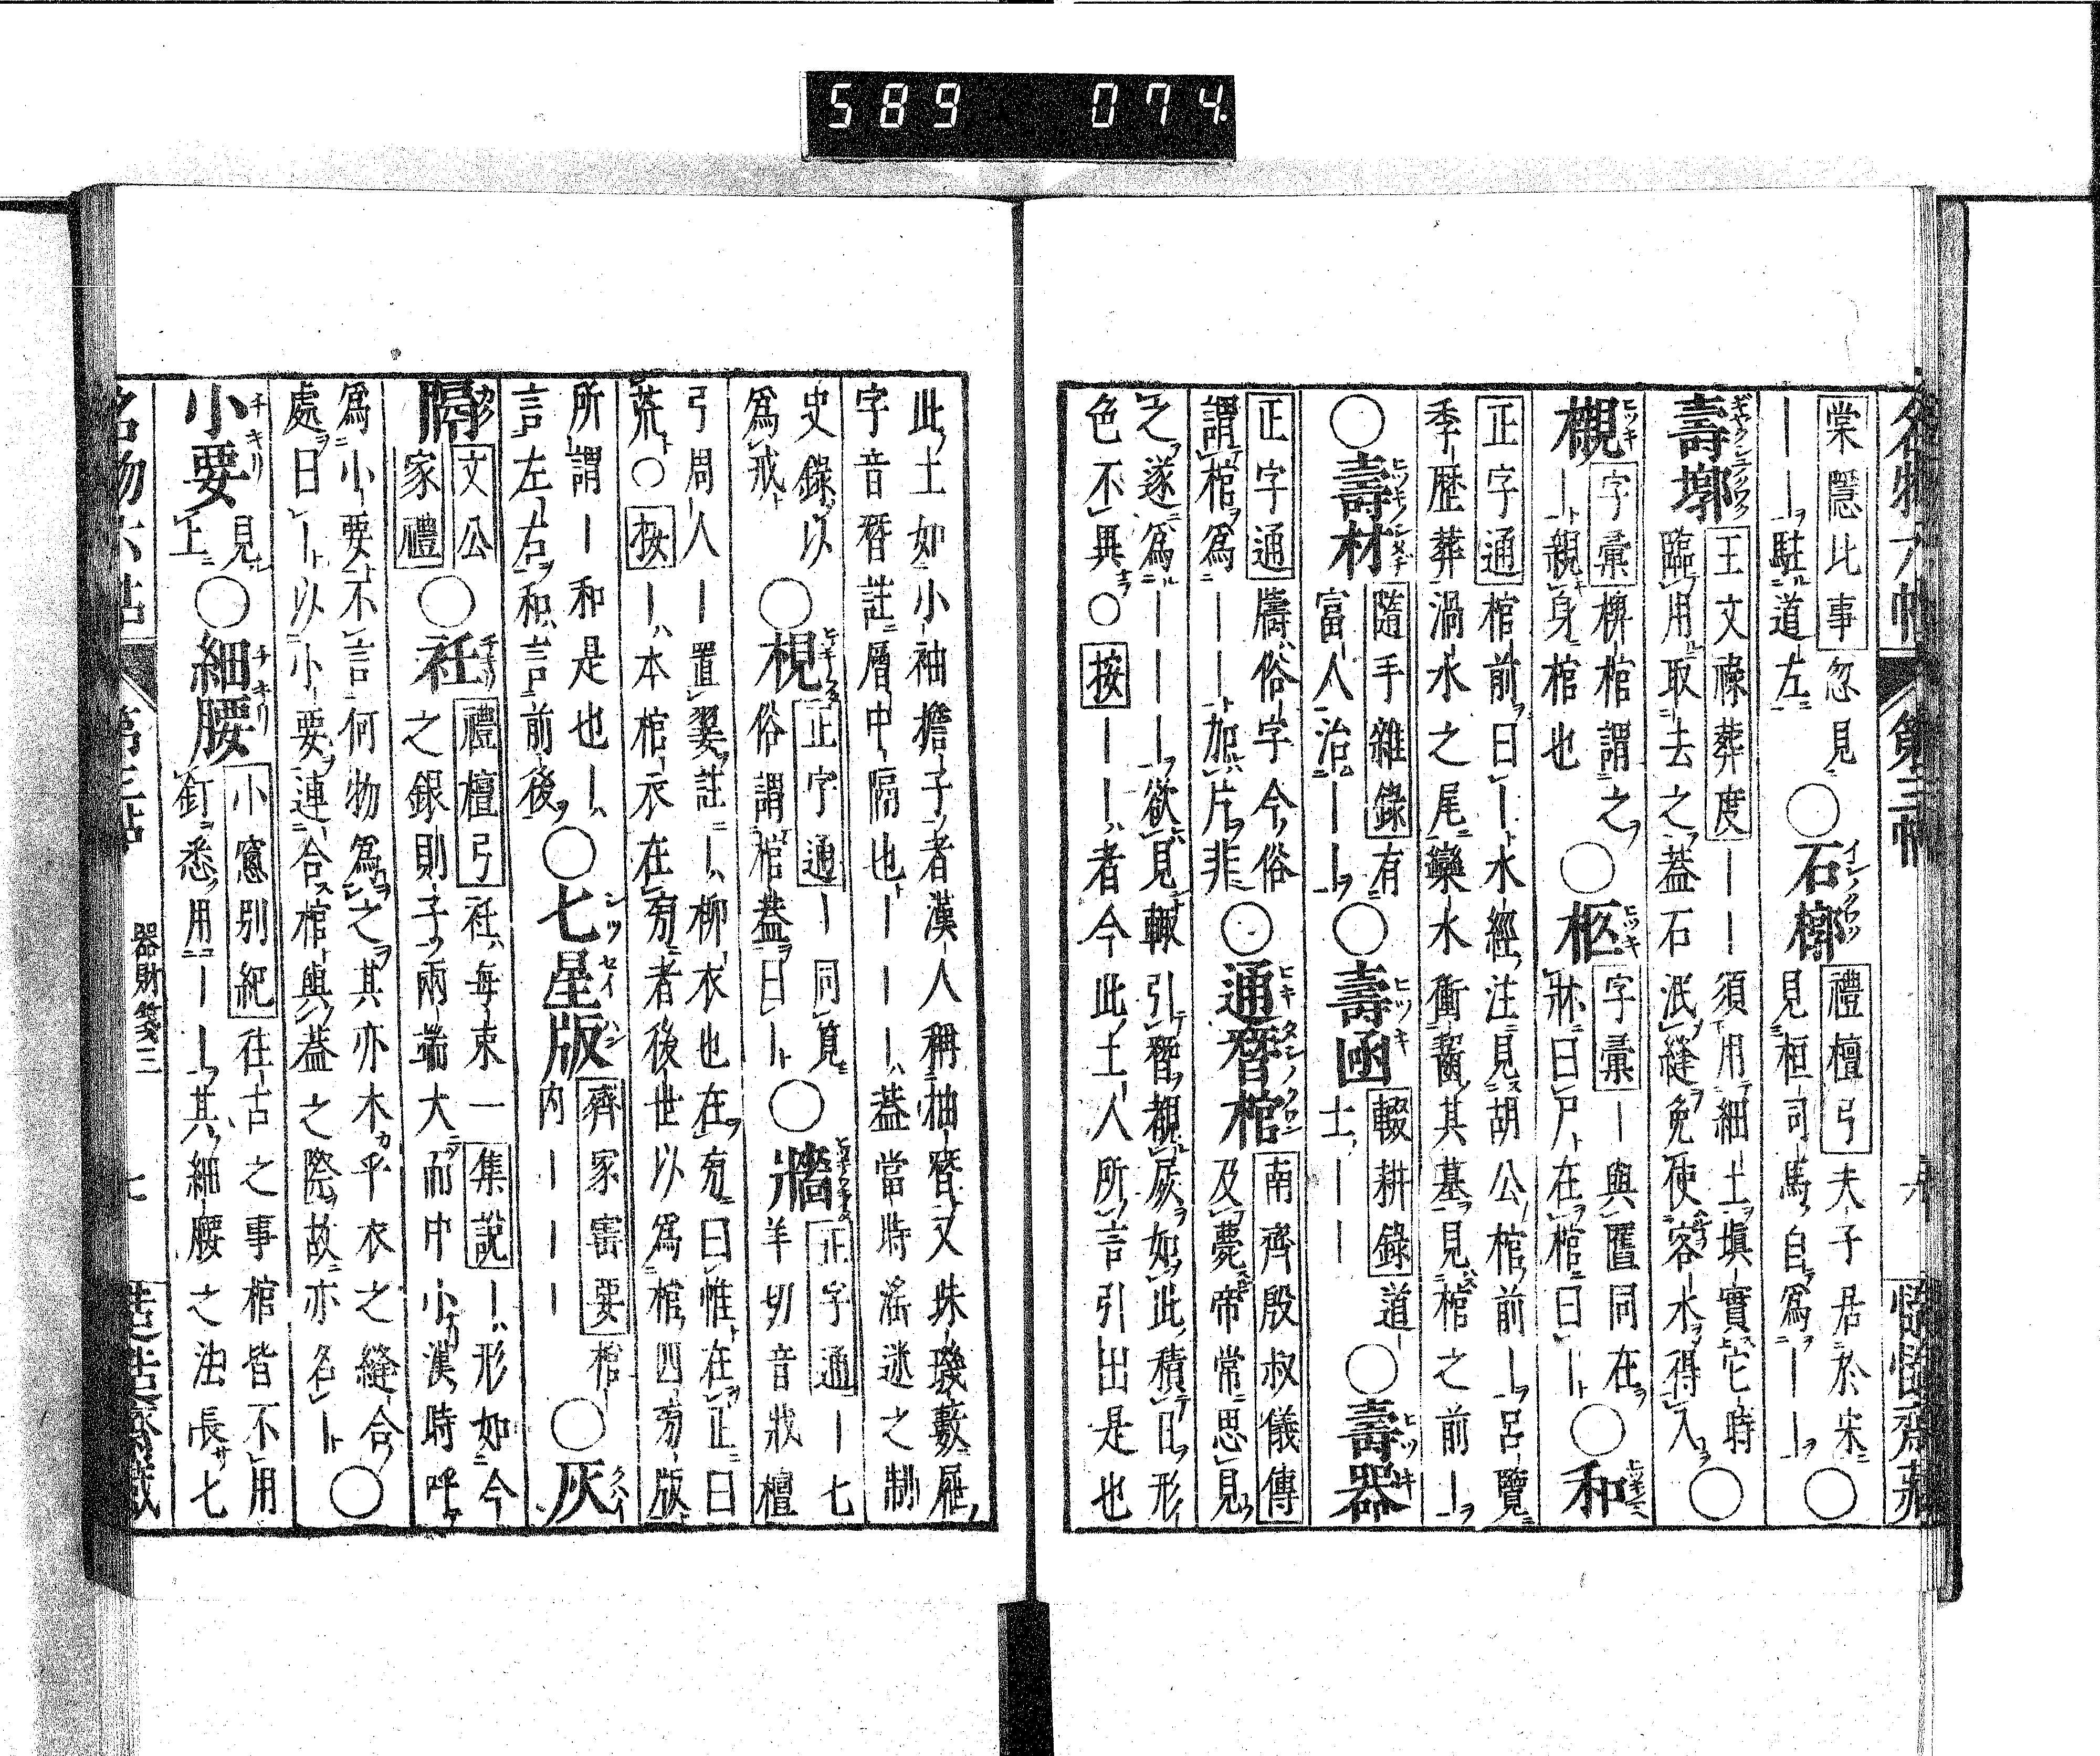 589 074
名物六帖 第三帖
棠隱比事忽見
｜｜駐道左
○石槨
禮檀弓夫子居於宋
見桓司馬自為｜｜
○
壽墎
王文祿葬度｜｜須用細土塡實它時
臨用取去之蓋石泯縫免使客水得入
○
櫬
字彙櫬棺謂之
｜親身棺也
○柩
字彙｜與匶同在
牀曰尸在棺曰｜
○和
正字通棺前曰｜水經注見胡公棺前｜呂覽
季歷葬渦水之尾欒水衝齧其墓見棺之前｜
○壽材
隨手雜錄有
富人治｜｜
○壽函
輟耕錄道
士｜｜
○壽器
正字通㯖俗字今俗
謂棺為｜｜加片非
○通替棺
南齊殷叔儀傳
及薨帝常思見
之遂為｜｜｜欲見輒引替覩屍如此積日形
色不異○按｜｜者今此土人所言引出是也
此土如小袖擔子者漢人稱抽替又珠璣藪屜
字音替註層中隔也｜｜｜蓋當時滛迷之制
史錄以
為戒
○梘
正字通｜同筧
俗謂棺蓋曰｜
○牆
正字通｜七
羊切音戕檀
弓周人｜置翣註｜柳衣也在旁曰帷在正曰
荒○按｜本棺衣在旁者後世以為棺四旁版
所謂｜和是也｜
言左右和言前後
○七星版
齊家寶要棺
內｜｜｜
○灰
隔
文公
家禮
○衽
禮檀弓衽每束一集說｜形如今
之銀則子兩端大而中小漢時呼
為小要不言何物為之其亦木乎衣之縫合
處曰｜以小要連合棺與蓋之際故亦名｜
○
小要
見
上
○細腰
小窻別紀往古之事棺皆不用
釘悉用｜｜其細腰之法長七
名物六帖 第三帖 器財箋三 七